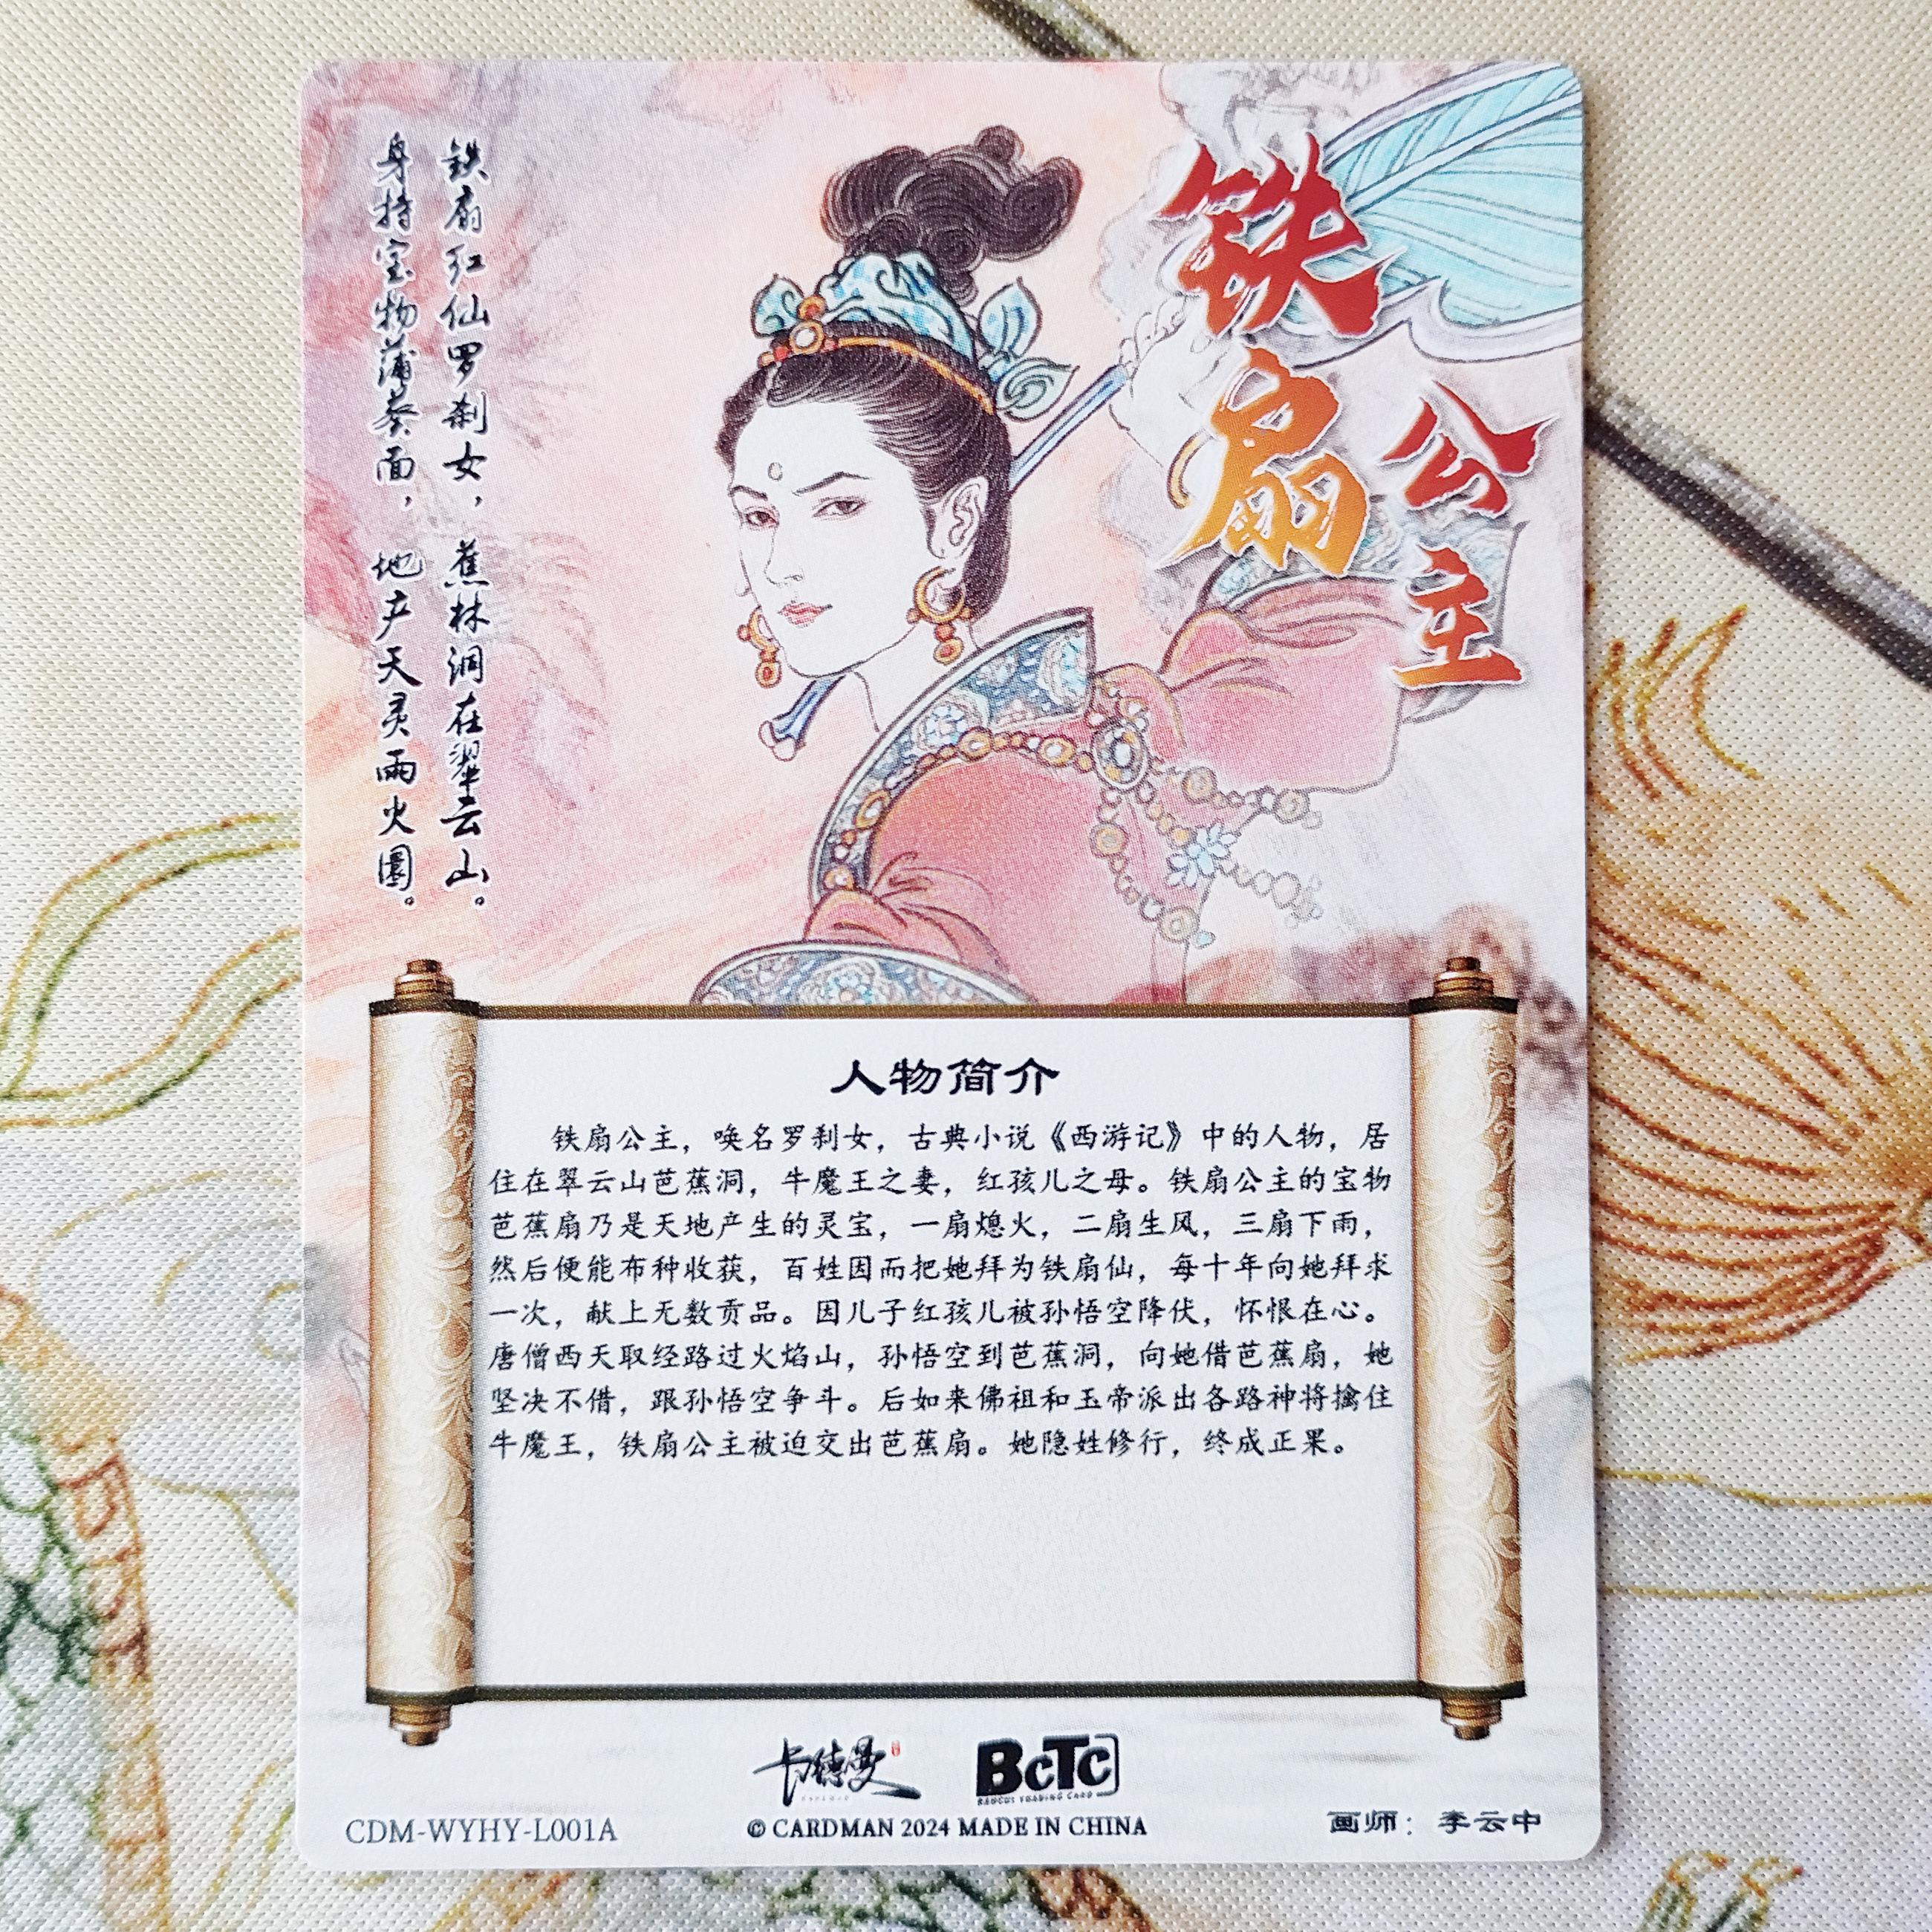 铁扇
公主
铁扇红仙罗刹女，蕉林洞在翠云山。
身持宝物蒲葵面，地产天灵雨火圜。
人物简介
铁扇公主，唤名罗刹女，古典小说《西游记》中的人物，居
住在翠云山芭蕉洞，牛魔王之妻，红孩儿之母。铁扇公主的宝物
芭蕉扇乃是天地产生的灵宝，一扇熄火，二扇生风，三扇下雨，
然后便能布种收获，百姓因而把她拜为铁扇仙，每十年向她拜求
一次，献上无数贡品。因儿子红孩儿被孙悟空降伏，怀恨在心。
唐僧西天取经路过火焰山，孙悟空到芭蕉洞，向她借芭蕉扇，她
坚决不借，跟孙悟空争斗。后如来佛祖和玉帝派出各路神将擒住
牛魔王，铁扇公主被迫交出芭蕉扇。她隐姓修行，终成正果。
卡德曼
BCTC
CDM-WYHY-L001A
© CARDMAN 2024 MADE IN CHINA
画师：李云中